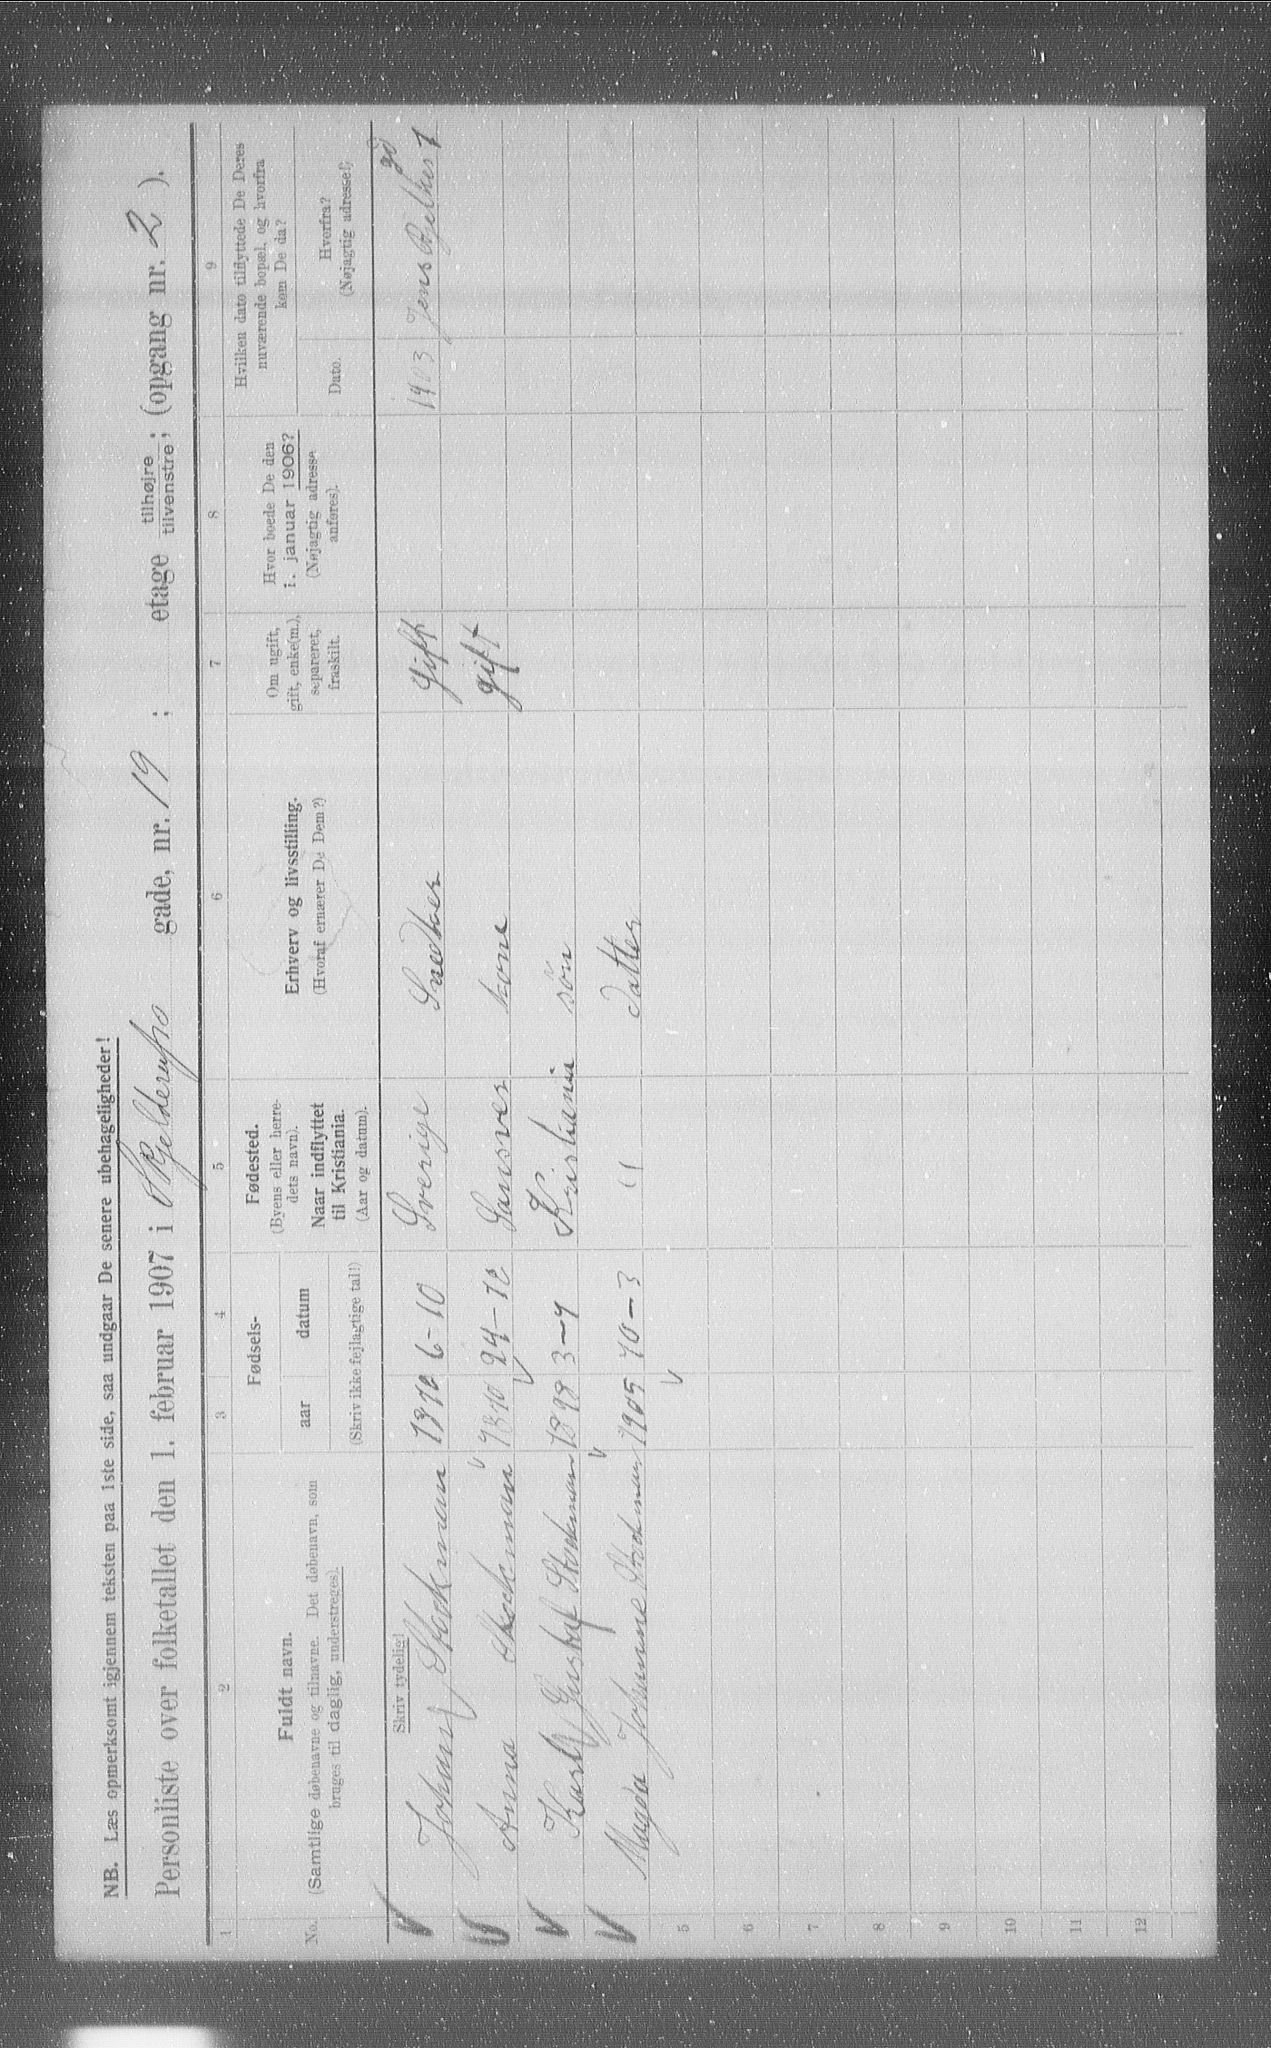 NB. Læs opmerksomt igjennem teksten paa 1ste side, saa undgaar De senere ubehageligheder!
Personliste over folketallet den 1. februar 1907 i Gjelderupsro gade, nr. 19 ; etage tilhøjre, tilvenstre, (opgang nr. 2 ).
1 2 3 4 5 6 7 8 9
No.
Fuldt navn.
(Samtlige døbenavne og tilnavne. Det døbenavn, som
bruges til daglig, understreges).
Fødsels-
aar datum
(Skriv ikke fejlagtige tal!)
Fødested.
(Byens eller herre-
dets navn).
Naar indflyttet
til Kristiania.
(Aar og datum).
Erhverv og livsstilling.
(Hvoraf ernærer De Dem?)
Om ugift,
gift, enke(m.),
separeret,
fraskilt.
Hvor boede De den
1. januar 1906?
(Nøjagtig adresse
anføres).
Hvilken dato tilflyttede De Deres
nuværende bopæl, og hvorfra
kom De da?
Dato.
Hvorfra?
(Nøjagtig adresse!)
Skriv tydelig!
Johan Stockman 6-10 Sverige Snedker gift 1903 Jens Bjelkes gd 1
Anna Stockman 1870 kone gift
Karl Gustaf Stockman 1898 3-4 Kristiania søn
Magda Johanne Stockman 1905 10-3 " datter
5
6
7
8
9
10
11
12